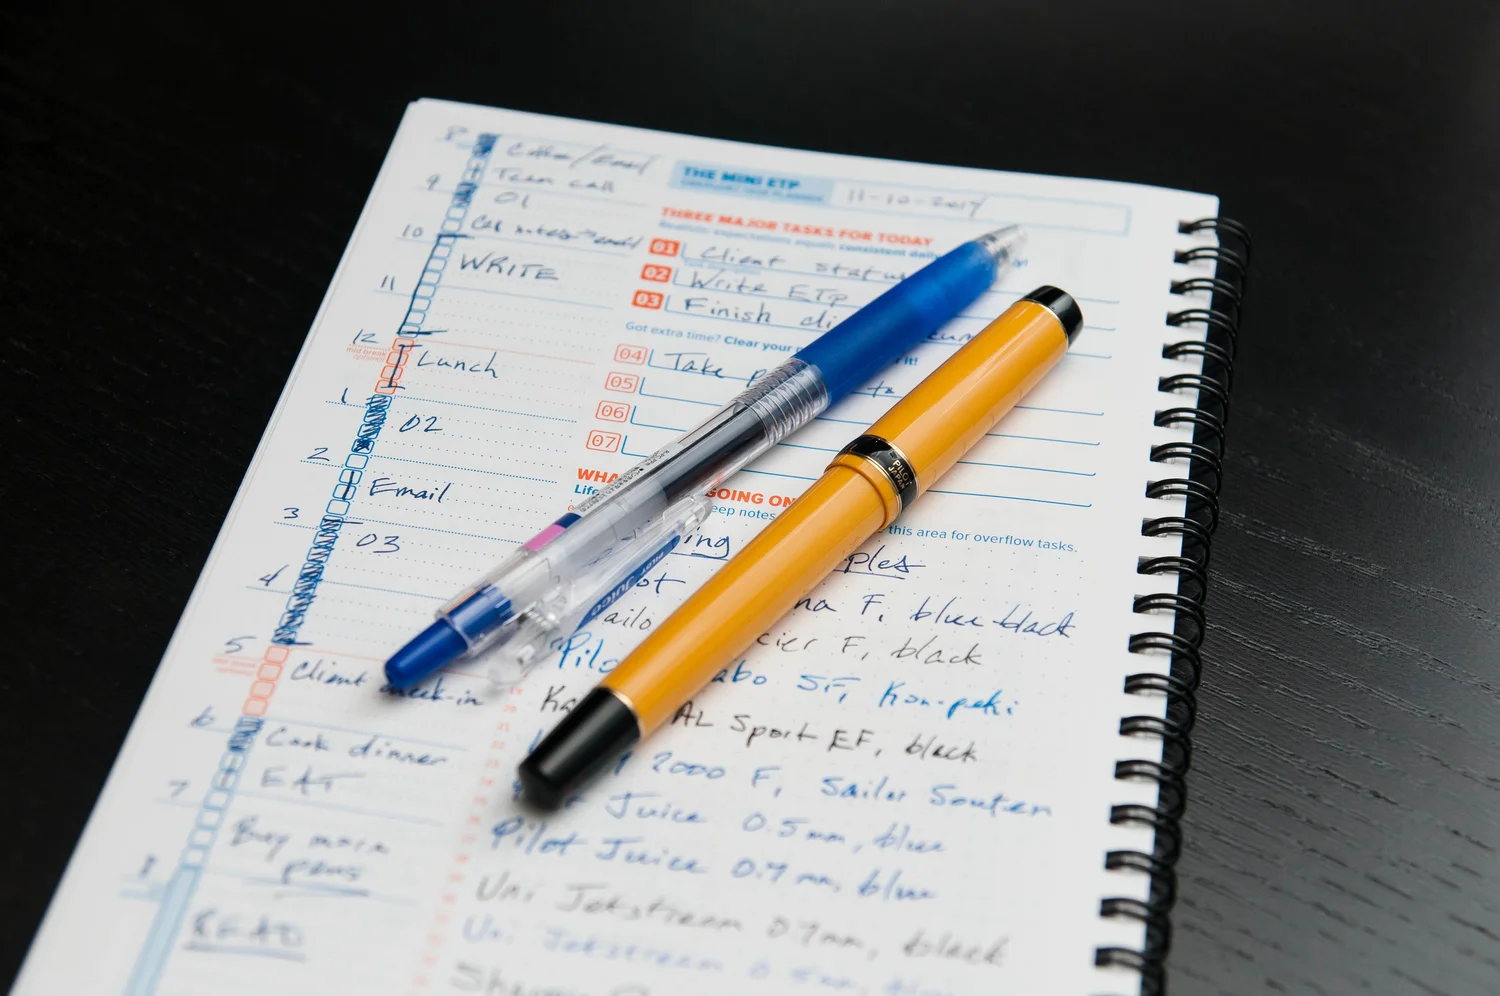 8 Coffee/Email
Team call
9 01
10 Call notes email
WRITE
11
12 Lunch
1 02
2 Email
3 03
4
5 Client check-in
6 Cook dinner
EAT
7
Buy more
pens
8
READ
THE MINI ETP 11-12-2014
THREE MAJOR TASKS FOR TODAY
Realistic expectations equals consistent daily
01 Client status
02 Write ETP
03 Finish cli
Got extra time? Clear your it!
04 Take
05
06
07
WHA GOING ON
Life eep notes this area for overflow tasks.
ing ples
ot na F, blue-black
ailo cier F, black
Pilo abo SF, Kon-peki
Ka AL Sport EF, black
2000 F, Sailor Souten
Juice 0.5mm, blue
Pilot Juice 0.7mm, blue
Uni Jetstream 0.7mm, black
Uni Jetstream 0.5mm, blue
PILOT
JAPAN
PILOT Juice